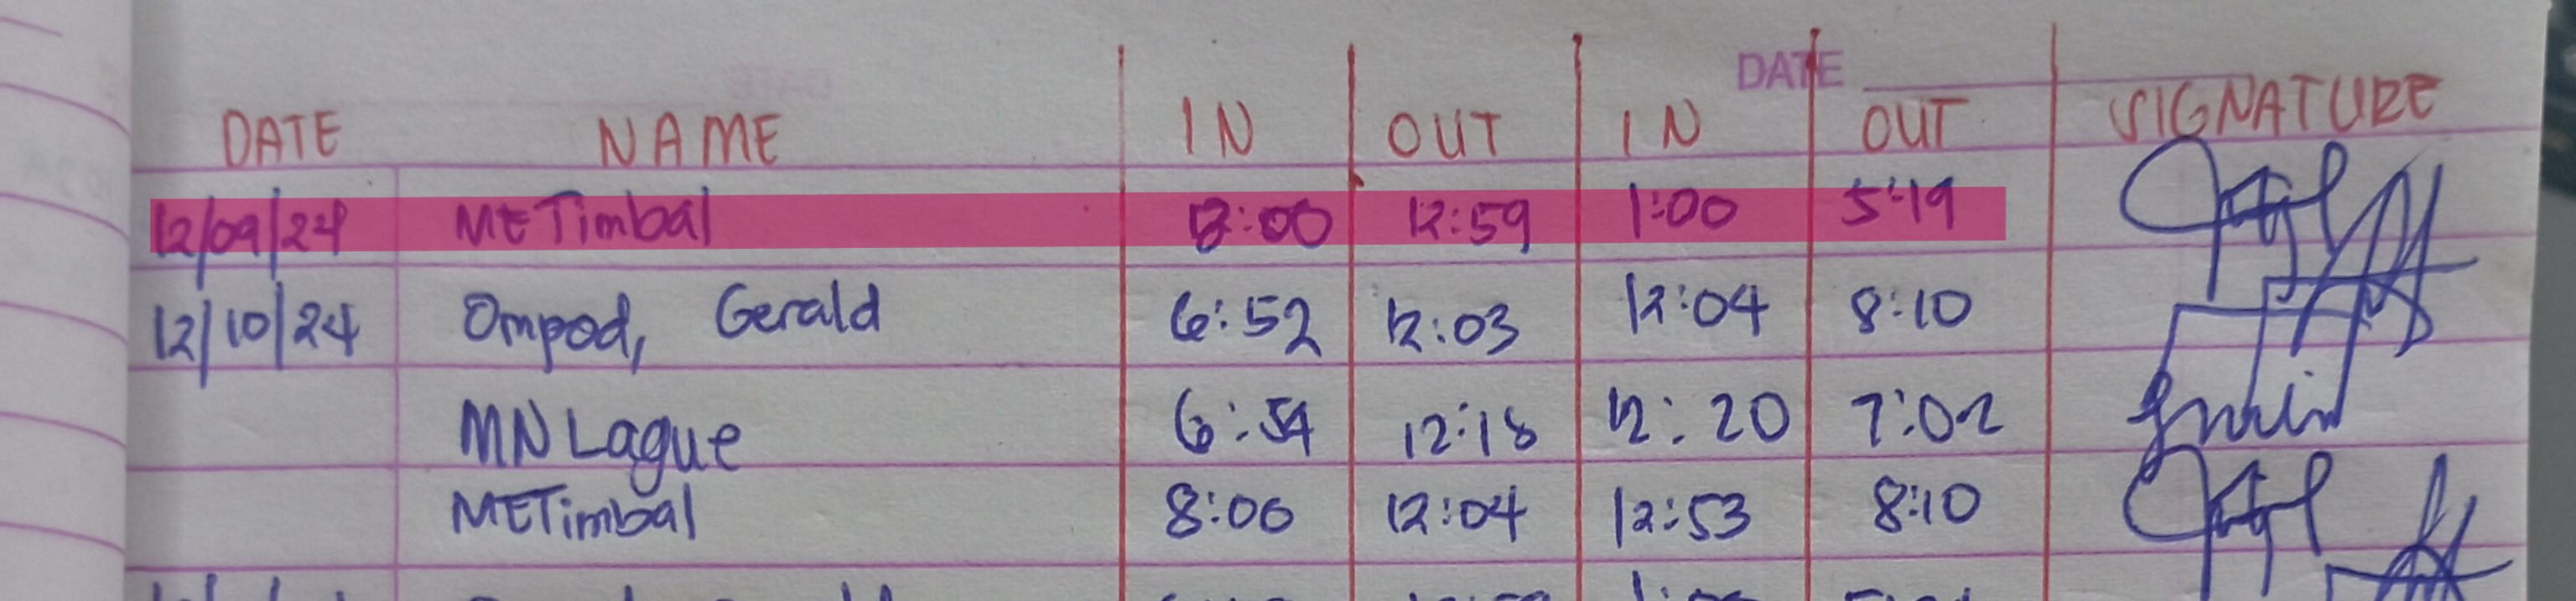 DATE
DATE NAME IN OUT IN OUT SIGNATURE
12/09/24 METimbal 12:59 1:00 5:19
12/10/24 Ompod, Gerald 6:52 12:03 12:04 8:10
MN Lague 6:54 12:18 12:20 7:02
METimbal 8:00 12:04 12:53 8:10